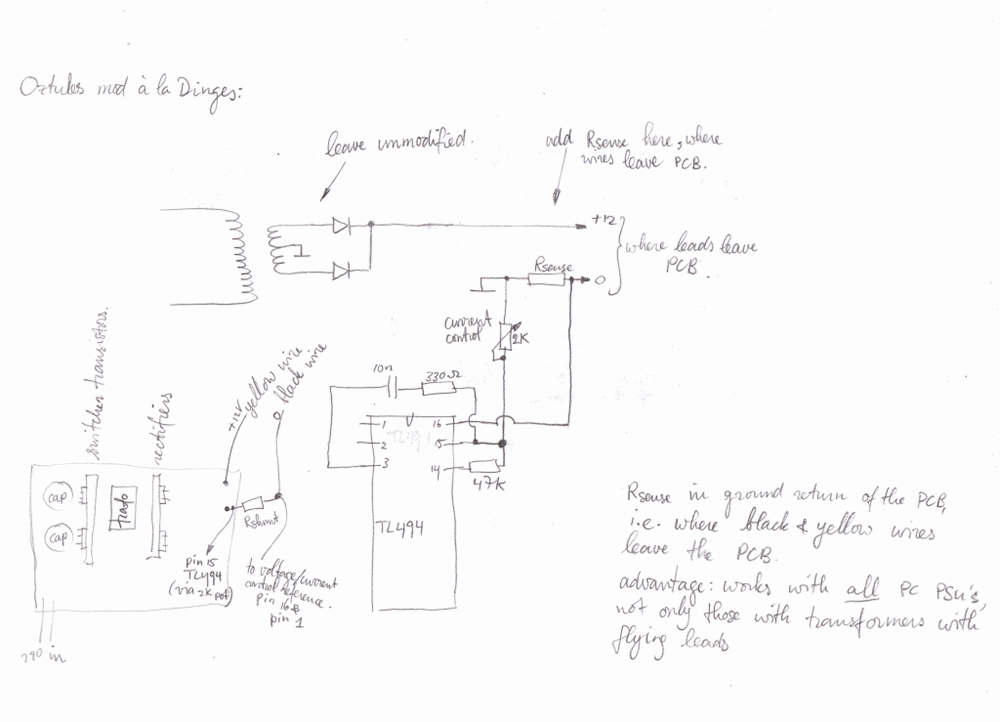 Oztules mod à la Dinges:
leave unmodified.
add Rsense here, where
wires leave PCB.
+12
where leads leave
PCB.
Rsense
0
current
control
2K
10n
330Ω
1
2
3
16
15
14
TL494
47K
TL494
switcher transistors.
rectifiers
+12V yellow wire
black wire
cap
cap
trafo
Rshunt
pin 15
TL494
(via 2K pot)
to voltage/current
control reference.
pin 16 &
pin 1
in
Rsense in ground return of the PCB,
i.e. where black & yellow wires
leave the PCB.
advantage: works with all PC PSU's,
not only those with transformers with
flying leads